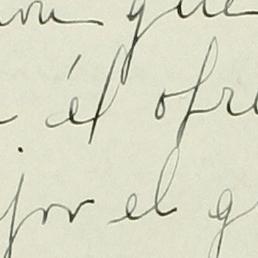 que
él ofre
por el g